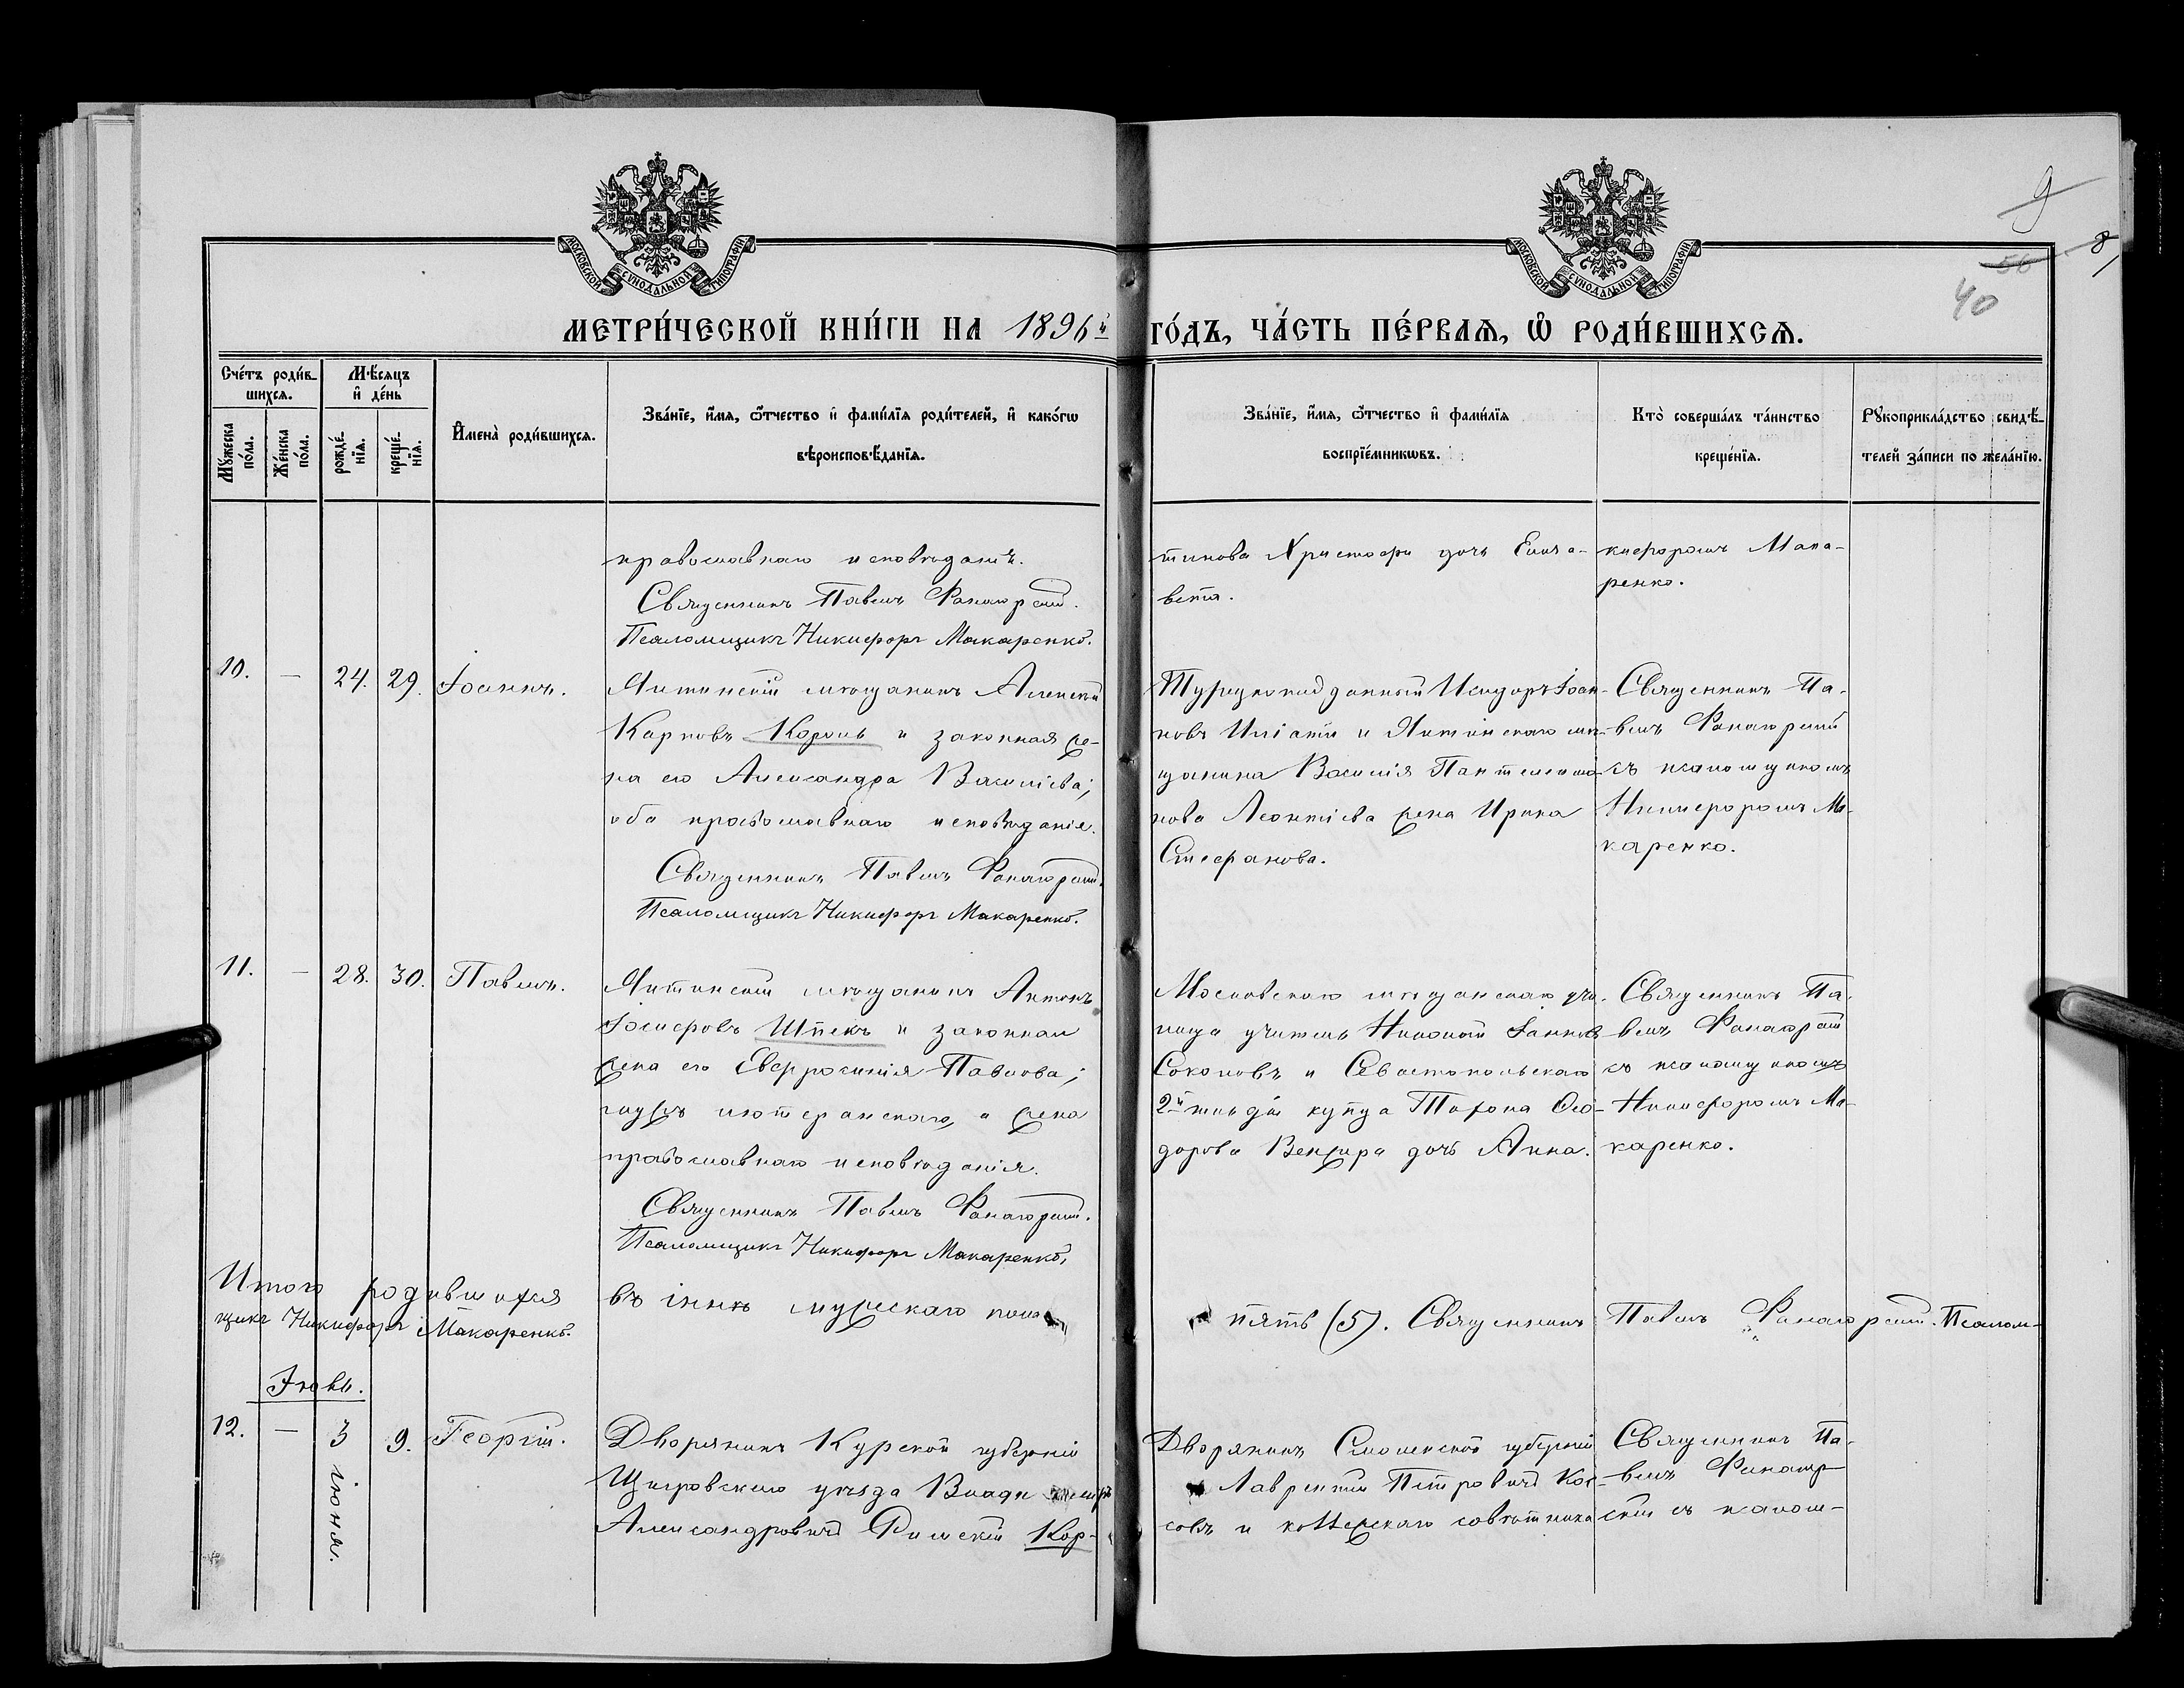 9
8
56
40
МОСКОВСКОЙ СѴНОДАЛЬНОЙ ТИПОГРАФІИ
МОСКОВСКОЙ СѴНОДАЛЬНОЙ ТИПОГРАФІИ
МЕТРИ́ЧЕСКОЙ КНИ́ГИ НА 1896й ГО́ДЪ, ЧА́СТЬ ПЕ́РВАѦ, Ѡ РОДИ́ВШИХСѦ.
Сче́тъ роди́в-
шихсѧ.
Мꙋ́жеска по́ла.
Же́нска по́ла.
Мѣ́сѧцъ
и де́нь
рожде́-нїѧ.
креще́-нїѧ.
Имена̀ роди́вшихсѧ.
Зва́нїе, и́мѧ, ѻ́тчество и фами́лїѧ роди́телей, и како́гѡ
вѣроисповѣ́данїѧ.
Зва́нїе, и́мѧ, ѻ́тчество и фами́лїѧ
воспрїе́мникѡвъ.
Кто̀ соверша́лъ та́инство
креще́нїѧ.
Рꙋкоприкла́дство свидѣ́-
телей за́писи по жела́нїю.
православнаго исповѣданія.
Священникъ Павелъ
Псаломщикъ Никифоръ Макаренко.
тинова Христофи дочь Елиза-
вета.
кифоромъ Мака-
ренко.
10. — 24. 29. Іоаннъ.
Ялтинскій мѣщанинъ Алексѣй
Карповъ Король и законная же-
на его Александра Василіева;
оба православнаго исповѣданія.
Священникъ Павелъ
Псаломщикъ Никифоръ Макаренко.
Турецкоподданный Исидоръ Іоан-
новъ и Ялтинскаго мѣ-
щанина Василія Пантелеимо-
нова Леонтіева жена Ирина
Стефанова.
Священникъ Па-
велъ
съ псаломщикомъ
Никифоромъ Ма-
каренко.
11. — 28. 30. Павелъ.
Ялтинскій мѣщанинъ Антонъ
Іосифовъ Шпекъ и законная
жена его Евфросинія Павлова;
мужъ лютеранскаго, а жена
православнаго исповѣданія.
Священникъ Павелъ
Псаломщикъ Никифоръ Макаренко.
Московскаго мѣщанскаго учи-
лища учитель Николай
Соколовъ и Севастопольскаго
2й гильдіи купца Ѳео-
дорова дочь Анна.
Священникъ Па-
велъ
съ псаломщикомъ
Никифоромъ Ма-
каренко.
Итого родившихся въ іюнѣ мужескаго пола пять (5). Священникъ Павелъ Псалом-
щикъ Никифоръ Макаренко.
Іюль.
12. — 3 іюня. 9. Георгій.
Дворянинъ Курской губерніи
Щигровскаго уѣзда Владиміръ
Александровичъ Римскій Кор-
Дворянинъ Смоленской губерніи
Лаврентій Петровичъ Кос-
совъ и коллежскаго совѣтника
Священникъ Па-
велъ
скій съ псалом-